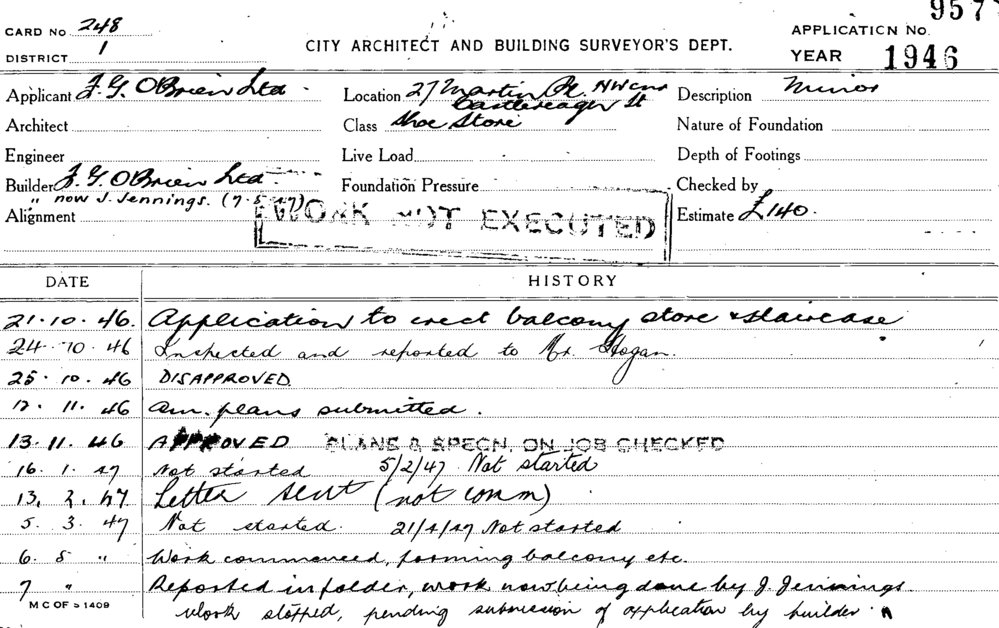 957
CARD No 248
DISTRICT 1
CITY ARCHITECT AND BUILDING SURVEYOR'S DEPT.
APPLICATION No.
YEAR 1946
Applicant J. G. O'Brien Ltd
Location 27 Martin Pl. NW cnr
Castlereagh St
Description Minor
Architect
Class Shoe Store
Nature of Foundation
Engineer
Live Load
Depth of Footings
Builder J. G. O'Brien Ltd.
Foundation Pressure
Checked by
" now J. Jennings. (7.5.47)
Alignment
WORK NOT EXECUTED
Estimate £140.
DATE HISTORY
21.10.46. Application to erect balcony store & staircase
24.10.46 Inspected and reported to Mr. Hogan.
25.10.46 DISAPPROVED
12.11.46 Am. plans submitted.
13.11.46 APPROVED PLANS & SPECN. ON JOB CHECKED
16.1.47 Not started 5/2/47 Not started
13.2.47 Letter sent (not comm)
5.3.47 Not started. 21/4/47 Not started
6.5 " Work commenced, forming balcony etc.
7 " Reported in folder, work now being done by J. Jennings.
M C OF S 1409
Work stopped, pending submission of application by builder.